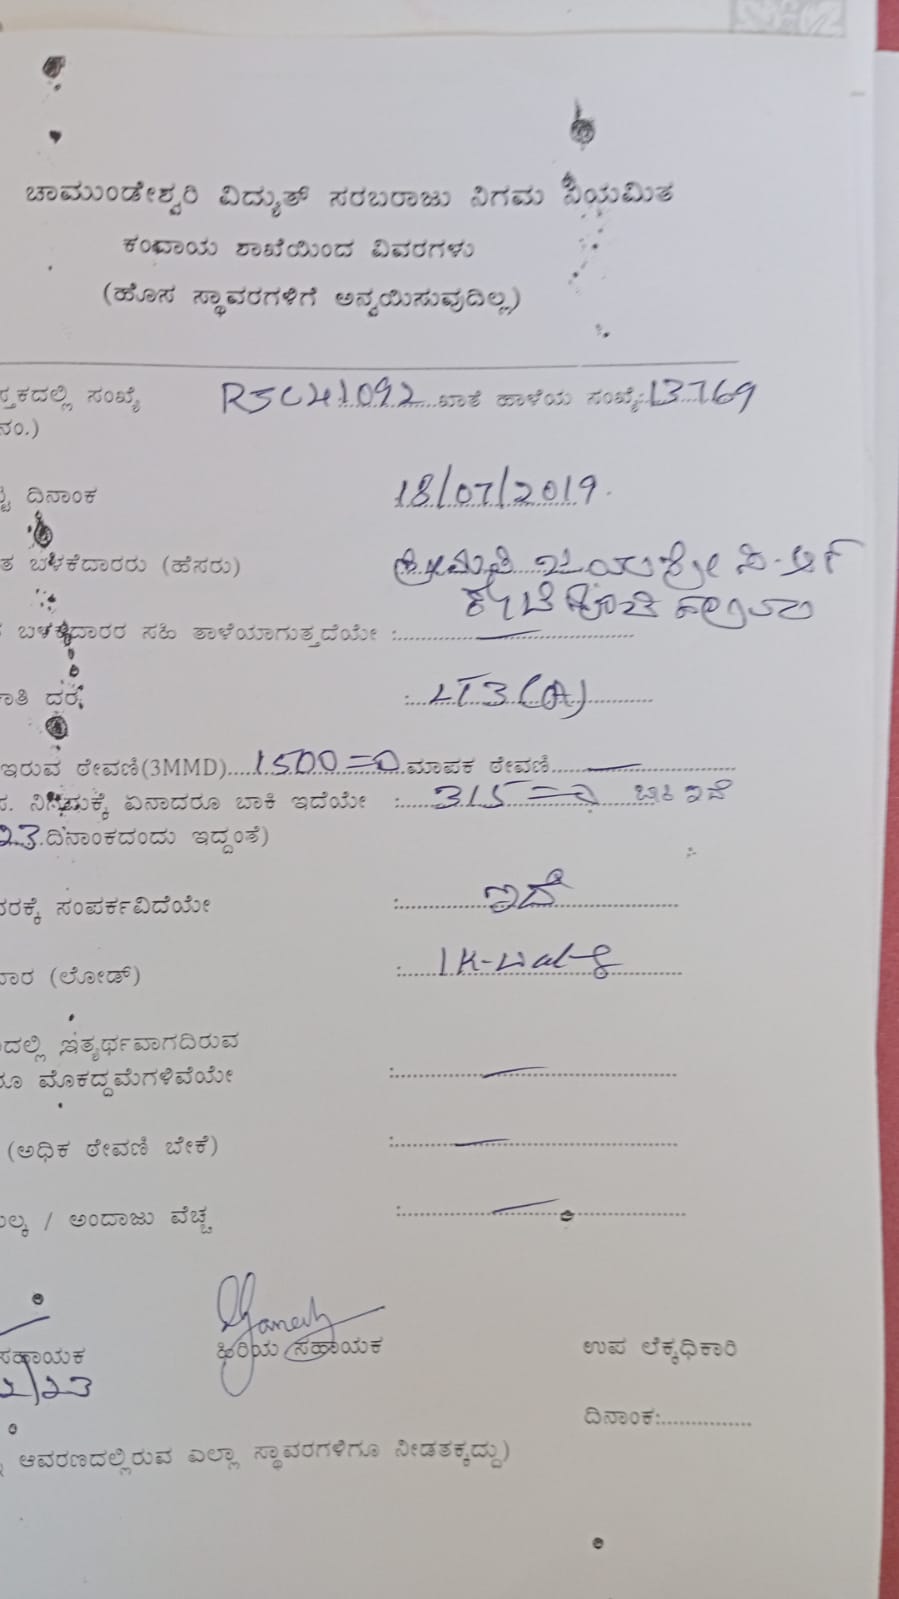 ಚಾಮುಂಡೇಶ್ವರಿ ವಿದ್ಯುತ್ ಸರಬರಾಜು ನಿಗಮ ನಿಯಮಿತ
ಕಂದಾಯ ಶಾಖೆಯಿಂದ ವಿವರಗಳು
(ಹೊಸ ಸ್ಥಾವರಗಳಿಗೆ ಅನ್ವಯಿಸುವುದಿಲ್ಲ)
ಸ್ತಕದಲ್ಲಿ ಸಂಖ್ಯೆ RJCH1092 ಖಾತೆ ಹಾಳೆಯ ಸಂಖ್ಯೆ: 13769
ನಂ.)
ದಿನಾಂಕ 18/07/2019.
ತ ಬಳಕೆದಾರರು (ಹೆಸರು) ಶ್ರೀಮತಿ ಜಯಶ್ರೀ ಸಿ. ಆರ್
ಬಳಕೆದಾರರ ಸಹಿ ತಾಳೆಯಾಗುತ್ತದೆಯೇ :
ಾತಿ ದರ : LT3(A)
ಇರುವ ಠೇವಣಿ(3MMD) 1500=0 ಮಾಪಕ ಠೇವಣಿ
ಸ. ನಿಗಮಕ್ಕೆ ಏನಾದರೂ ಬಾಕಿ ಇದೆಯೇ : 315=0 ಬಾಕಿ ಇದೆ
23 ದಿನಾಂಕದಂದು ಇದ್ದಂತೆ)
ವರಕ್ಕೆ ಸಂಪರ್ಕವಿದೆಯೇ : ಇದೆ
ಭಾರ (ಲೋಡ್) :
ದಲ್ಲಿ ಇತ್ಯರ್ಥವಾಗದಿರುವ
ರೂ ಮೊಕದ್ದಮೆಗಳಿವೆಯೇ :
(ಅಧಿಕ ಠೇವಣಿ ಬೇಕೆ) :
ಲ್ಕ / ಅಂದಾಜು ವೆಚ್ಚ :
ಸಹಾಯಕ ಹಿರಿಯ ಸಹಾಯಕ ಉಪ ಲೆಕ್ಕಧಿಕಾರಿ
2/23
ದಿನಾಂಕ:
ಆವರಣದಲ್ಲಿರುವ ಎಲ್ಲಾ ಸ್ಥಾವರಗಳಿಗೂ ನೀಡತಕ್ಕದ್ದು)